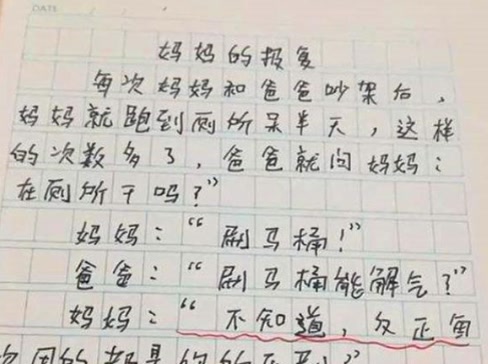 DATE
妈妈的报复
每次妈妈和爸爸吵架后,
妈妈就跑到厕所呆半天,这样
的次数多了,爸爸就问妈妈:
在厕所干吗?”
妈妈:“刷马桶!”
爸爸:“刷马桶能解气?”
妈妈:“不知道,反正